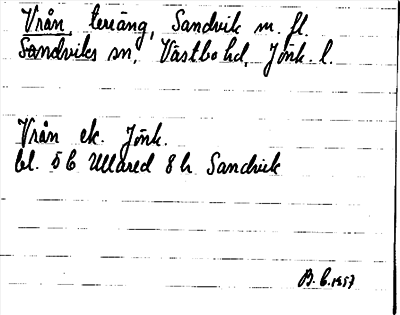 Vrån, teräng, Sandvik m. fl.
Sandviks sn, Västbo hd, Jönk. l.
Vrån ek. Jönk.
bl. 5 C Ullared 8 h Sandvik
B. C. 1957